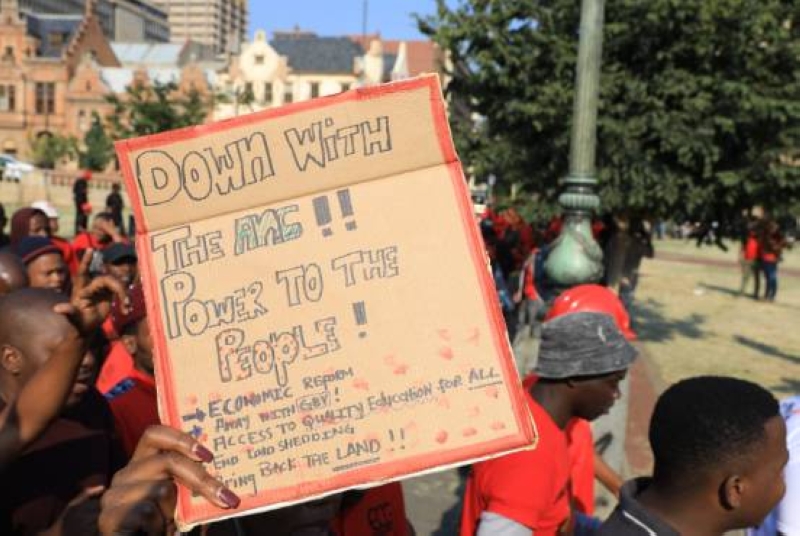 DOWN WITH
THE ANC !!
POWER TO THE
PEOPLE !
→ ECONOMIC REFORM
AWAY WITH GBV!
ACCESS TO QUALITY Education FOR ALL
END LOAD SHEDDING
Bring BACK THE LAND !!